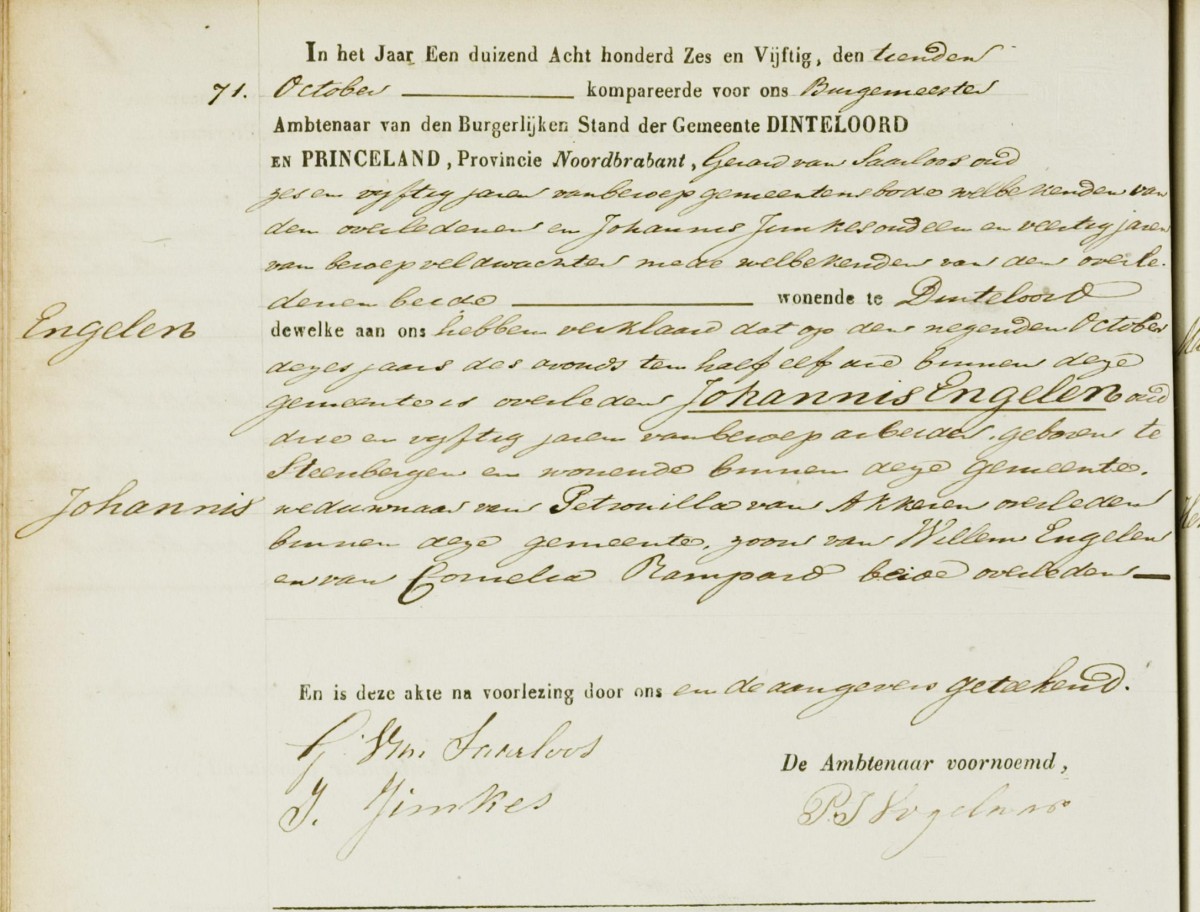 In het Jaar Een duizend Acht honderd Zes en Vijftig, den tienden
71. October kompareerde voor ons Burgemeester
Ambtenaar van den Burgerlijken Stand der Gemeente DINTELOORD
EN PRINCELAND, Provincie Noordbrabant, Gerard van Saarloos oud
zes en vyftig jaren van beroep gemeentensbode welbekenden van
den overledenen en Johannis Jimkes oud een en veertig jaren
van beroep veldwachter mede welbekenden van den overle-
denen beide wonende te Dinteloord
Engelen
dewelke aan ons hebben verklaard dat op den negenden October
dezes jaars des avonds ten half elf ure binnen deze
gemeente is overleden Johannis Engelen oud
drie en vyftig jaren van beroep arbeider, geboren te
Steenbergen en wonende binnen deze gemeente,
Johannis
weduwnaar van Petronilla van Akkeren overleden
binnen deze gemeente, zoon van Willem Engelen
en van Cornelia Rampard beide overleden
En is deze akte na voorlezing door ons en de aangevers geteekend.
G. Van Saarloos
De Ambtenaar voornoemd,
J. Jimkes